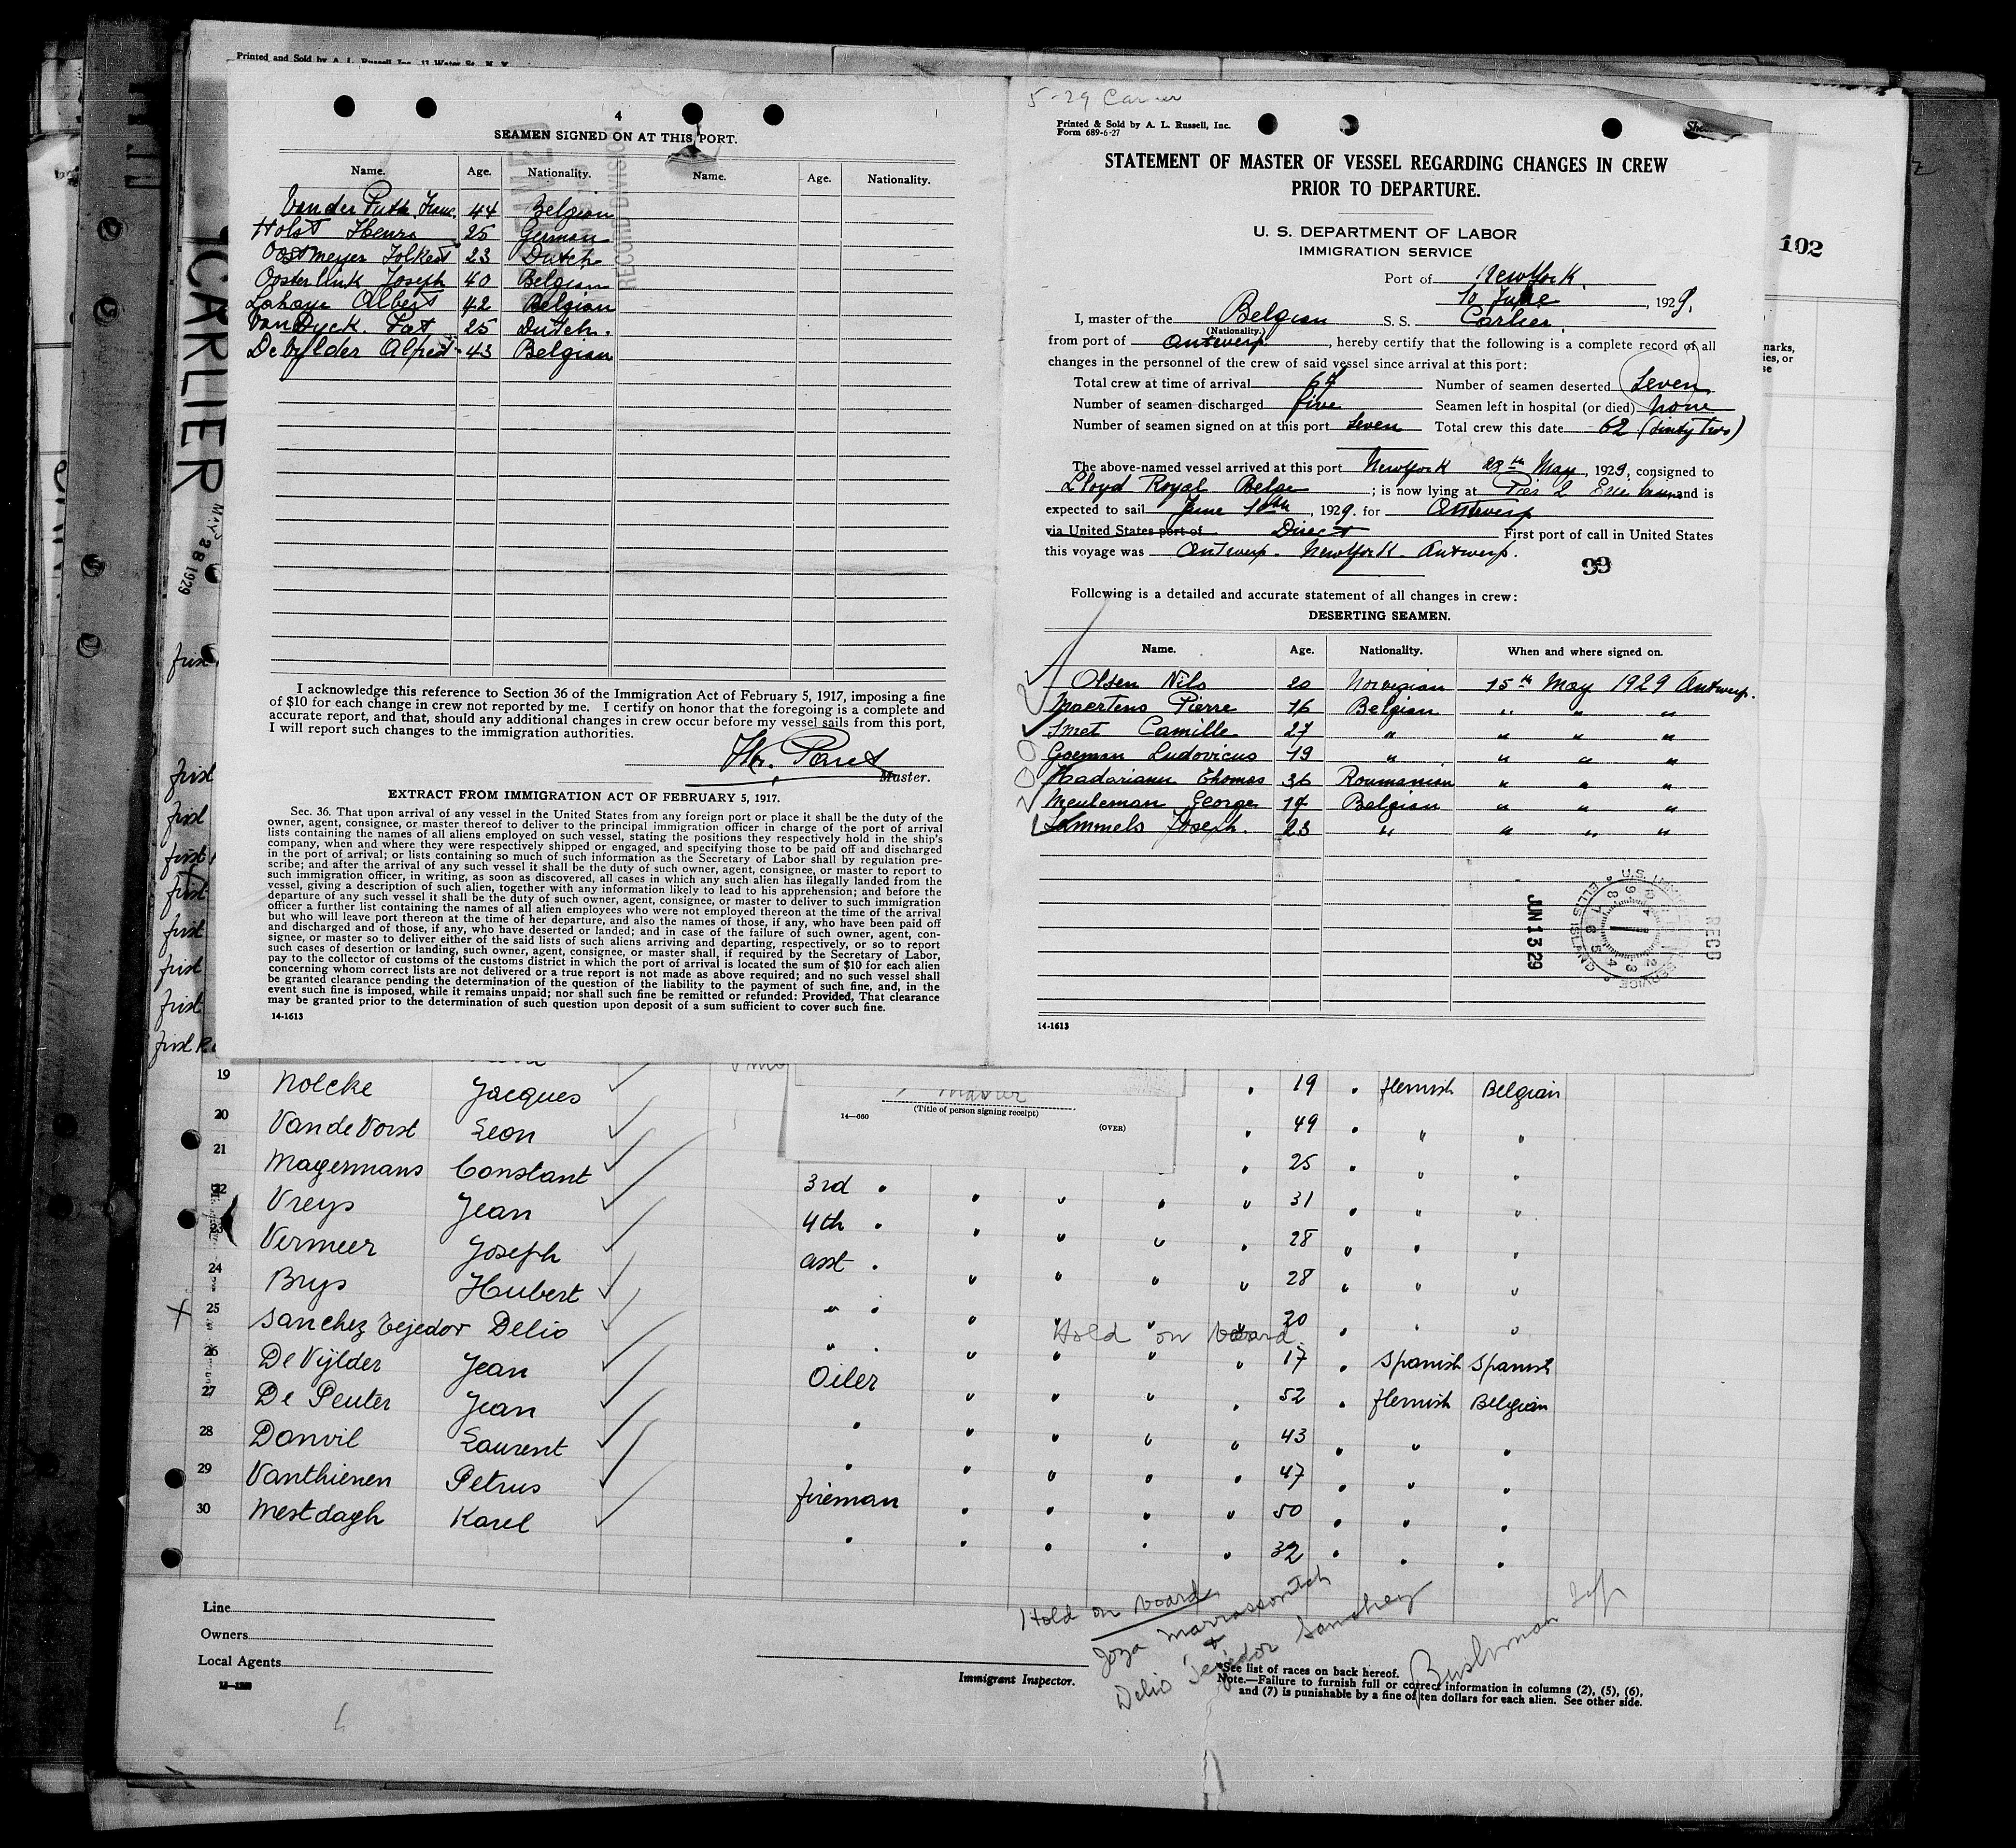 Printed and Sold by A. L. Russell, Inc., 11 Water St., N. Y.
CARLIER
May 28 1929
102
4
SEAMEN SIGNED ON AT THIS PORT.
Name. Age. Nationality. Name. Age. Nationality.
Van der Putte Franc. 44 Belgian
Holst Henri 25 German
Oostmeyer Folkert 23 Dutch
Oosterlink Joseph 40 Belgian
Lahaye Albert 42 Belgian
Van Dyck. Pat 25 Dutch.
De Vylder Alfred 43 Belgian
RECORD DIVISION
I acknowledge this reference to Section 36 of the Immigration Act of February 5, 1917, imposing a fine
of $10 for each change in crew not reported by me. I certify on honor that the foregoing is a complete and
accurate report, and that, should any additional changes in crew occur before my vessel sails from this port,
I will report such changes to the immigration authorities.
Master.
EXTRACT FROM IMMIGRATION ACT OF FEBRUARY 5, 1917.
Sec. 36. That upon arrival of any vessel in the United States from any foreign port or place it shall be the duty of the
owner, agent, consignee, or master thereof to deliver to the principal immigration officer in charge of the port of arrival
lists containing the names of all aliens employed on such vessel, stating the positions they respectively hold in the ship's
company, when and where they were respectively shipped or engaged, and specifying those to be paid off and discharged
in the port of arrival; or lists containing so much of such information as the Secretary of Labor shall by regulation pre-
scribe; and after the arrival of any such vessel it shall be the duty of such owner, agent, consignee, or master to report to
such immigration officer, in writing, as soon as discovered, all cases in which any such alien has illegally landed from the
vessel, giving a description of such alien, together with any information likely to lead to his apprehension; and before the
departure of any such vessel it shall be the duty of such owner, agent, consignee, or master to deliver to such immigration
officer a further list containing the names of all alien employees who were not employed thereon at the time of the arrival
but who will leave port thereon at the time of her departure, and also the names of those, if any, who have been paid off
and discharged and of those, if any, who have deserted or landed; and in case of the failure of such owner, agent, con-
signee, or master so to deliver either of the said lists of such aliens arriving and departing, respectively, or so to report
such cases of desertion or landing, such owner, agent, consignee, or master shall, if required by the Secretary of Labor,
pay to the collector of customs of the customs district in which the port of arrival is located the sum of $10 for each alien
concerning whom correct lists are not delivered or a true report is not made as above required; and no such vessel shall
be granted clearance pending the determination of the question of the liability to the payment of such fine, and, in the
event such fine is imposed, while it remains unpaid; nor shall such fine be remitted or refunded: Provided, That clearance
may be granted prior to the determination of such question upon deposit of a sum sufficient to cover such fine.
14-1613
5-29 Carlier
Printed & Sold by A. L. Russell, Inc.
Form 689-6-27
STATEMENT OF MASTER OF VESSEL REGARDING CHANGES IN CREW
PRIOR TO DEPARTURE.
U. S. DEPARTMENT OF LABOR
IMMIGRATION SERVICE
Port of New York.
10 June, 1929.
I, master of the Belgian S. S. Carlier.
(Nationality.)
from port of Antwerp, hereby certify that the following is a complete record of all
changes in the personnel of the crew of said vessel since arrival at this port:
Total crew at time of arrival 67 Number of seamen deserted Seven
Number of seamen discharged five Seamen left in hospital (or died) none
Number of seamen signed on at this port Seven Total crew this date 62 (sixty two)
The above-named vessel arrived at this port New York 28th May, 1929, consigned to
Lloyd Royal Belge; is now lying at Pier 2 Erie and is
expected to sail June 10th, 1929. for Antwerp
via United States port of Direct First port of call in United States
this voyage was Antwerp - New York - Antwerp.
99
Following is a detailed and accurate statement of all changes in crew:
DESERTING SEAMEN.
Name. Age. Nationality. When and where signed on.
Olsen Nils 20 Norvegian 15th May 1929 Antwerp.
Maertens Pierre 16 Belgian " " "
Smet Camille 27 " " " "
Goeman Ludovicus 19 " " " "
Madariann Thomas 36 Roumanian " " "
Meuleman George 17 Belgian " " "
Lammels Joseph. 23 " " " "
JUN 13 29
REC'D
14-1613
19 Nolcke Jacques 19 flemish Belgian
20 Van de Vorst Leon 49 " "
21 Magermans Constant 25 " "
22 Vreys Jean 3rd 31 " "
23 Vermeer Joseph 4th 28 " "
24 Brys Hubert asst 28 " "
25 Sanchez Tejedor Delio " Hold on board 20 " "
26 De Vijlder Jean " 17 Spanish Spanish
27 De Peuter Jean Oiler 52 flemish Belgian
28 Danvil Laurent " 43 " "
29 Vanthienen Petrus " 47 " "
30 Mestdagh Karel fireman 50 " "
" 32 " "
14—660
(Title of person signing receipt)
(OVER)
Line
Owners
Local Agents
Immigrant Inspector.
Hold on board
Joza Marrassovitch
&
Delio Tejedor Sanchez
*See list of races on back hereof.
Note.—Failure to furnish full or correct information in columns (2), (5), (6),
and (7) is punishable by a fine of ten dollars for each alien. See other side.